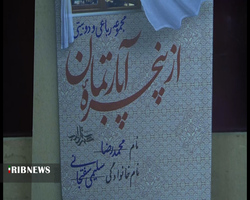 مجموعه رباعی و دوبیتی
از پنجره
آپارتمان
نام: محمدرضا
نام خانوادگی:
IRIBNEWS